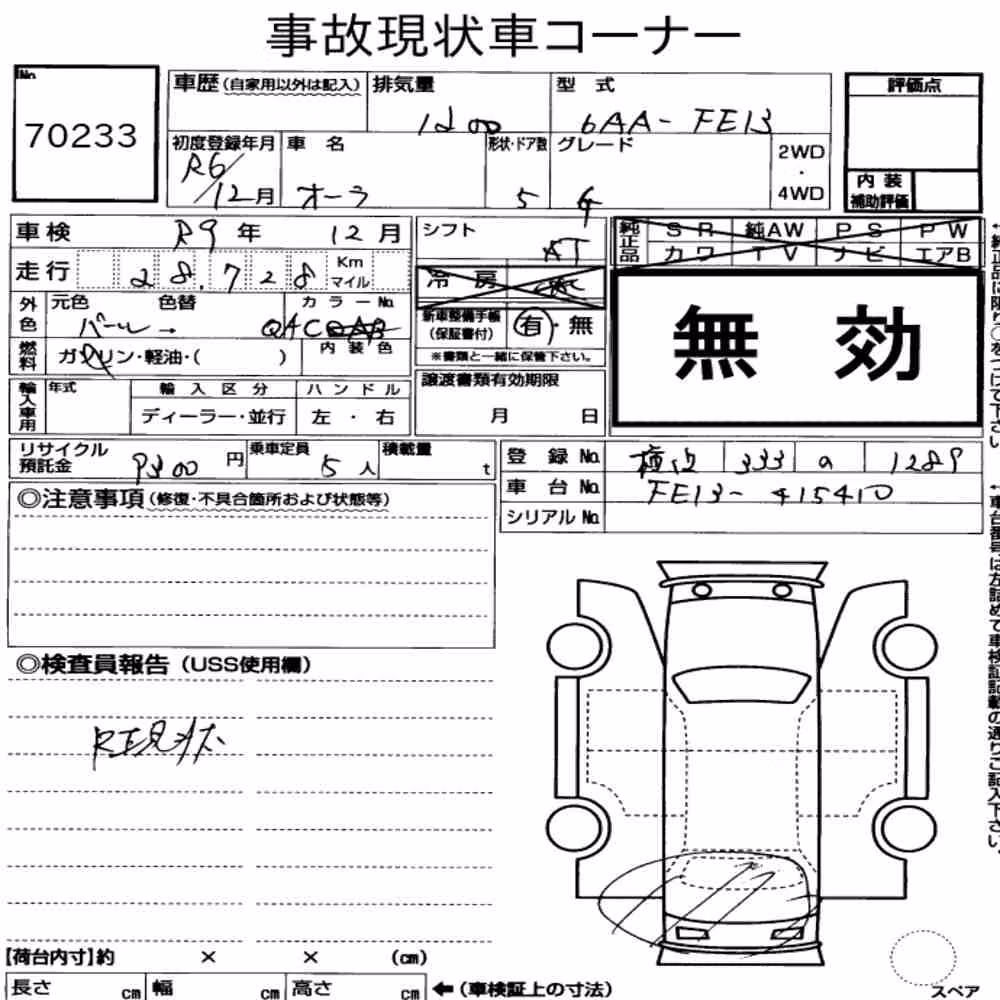 事故現状車コーナー
No.
70233
車歴 (自家用以外は記入)
排気量
1200
型式
6AA-FE13
評価点
初度登録年月
R6/12月
車名
オーラ
形状・ドア数
5
グレード
G
2WD
・
4WD
内装
補助評価
車検 R9年 12月
走行 28,728 Km
マイル
外色
元色 色替
パール→
カラーNo.
QAC
燃料
ガソリン・軽油・( )
内装色
輸入車用
年式
輸入区分
ディーラー・並行
ハンドル
左・右
シフト
AT
冷房
新車整備手帳
(保証書付)
有・無
※書類と一緒に保管下さい。
譲渡書類有効期限
月 日
純正品
SR 純AW PS PW
カワ TV ナビ エアB
無効
←純正品に限り○をつけて下さい
リサイクル
預託金
9300円
乗車定員
5人
積載量
t
登録No. 333 1289
車台No. FE13-415410
シリアルNo.
←車台番号は左詰めで車検証記載の通りご記入下さい。
◎注意事項(修復・不具合箇所および状態等)
◎検査員報告(USS使用欄)
R正現状
【荷台内寸】約 × × (cm)
長さ cm 幅 cm 高さ cm ←(車検証上の寸法)
スペア